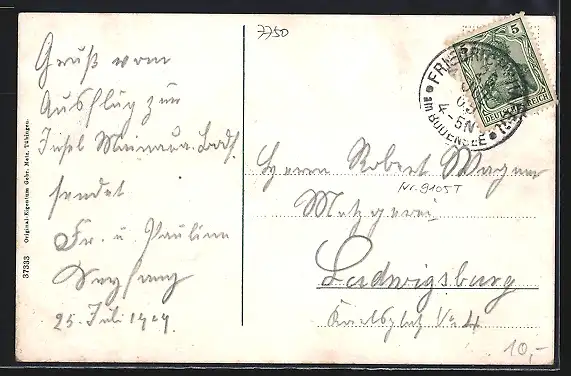 7750
Gruß vom
Ausflug zur
Insel Mainau
sendet
Fr. u. Pauline
25. Juli 1909.
Original-Eigentum Gebr. Metz, Tübingen.
37333
FRIEDRICHSHAFEN
4-5N
am BODENSEE
5
DEUTSCHES REICH
Herrn Robert Wagner
Nr. 9105T
Metzgerei
Ludwigsburg
No 4
10,-